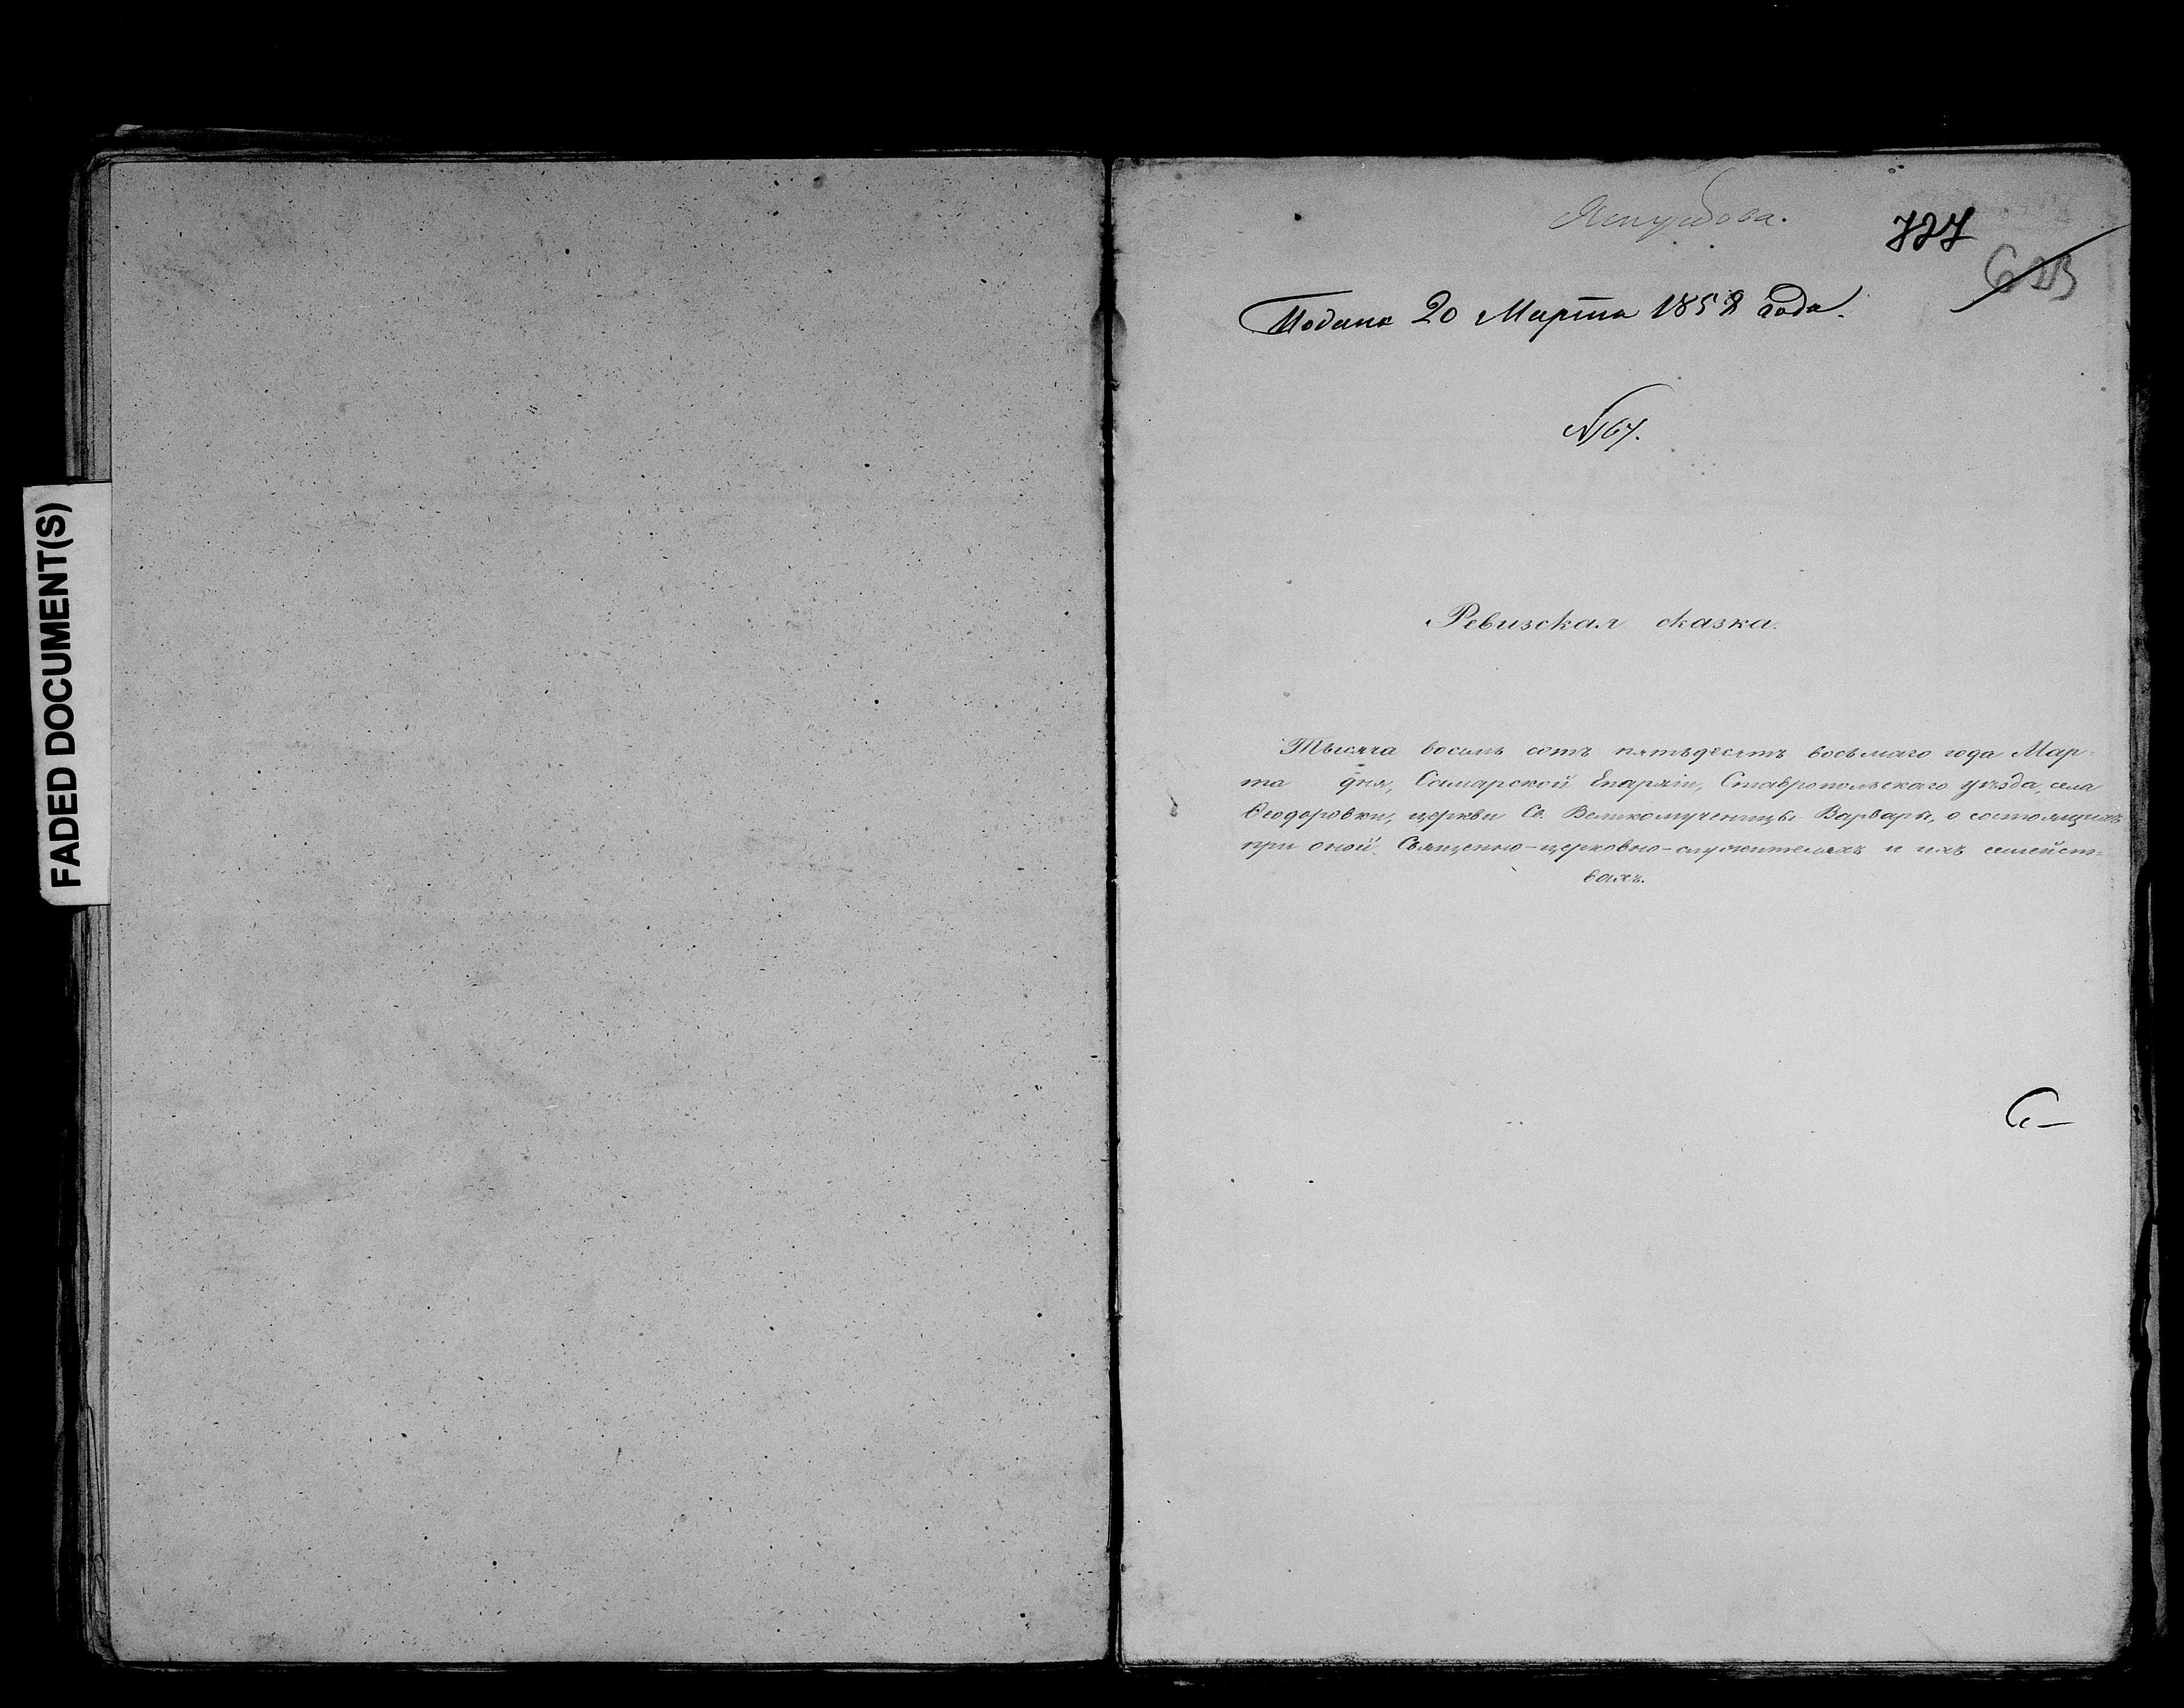 FADED DOCUMENT(S)
727
Подана 20 Марта 1858 года.
№ 67.
Ревизская сказка.
Тысяча восемь сотъ пятьдесятъ восьмаго года Мар-
та дня, Самарской Епархіи, Ставропольскаго уѣзда, села
Ѳеодоровки, церкви Св. Великомученицы Варвары, о состоящихъ
при оной Священно-церковно-служителяхъ и ихъ семейст-
вахъ.